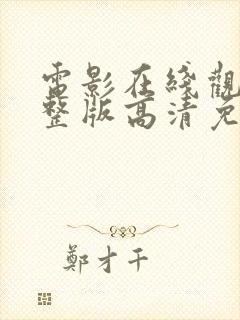 電影在綫觀
整版高清免
鄭才千